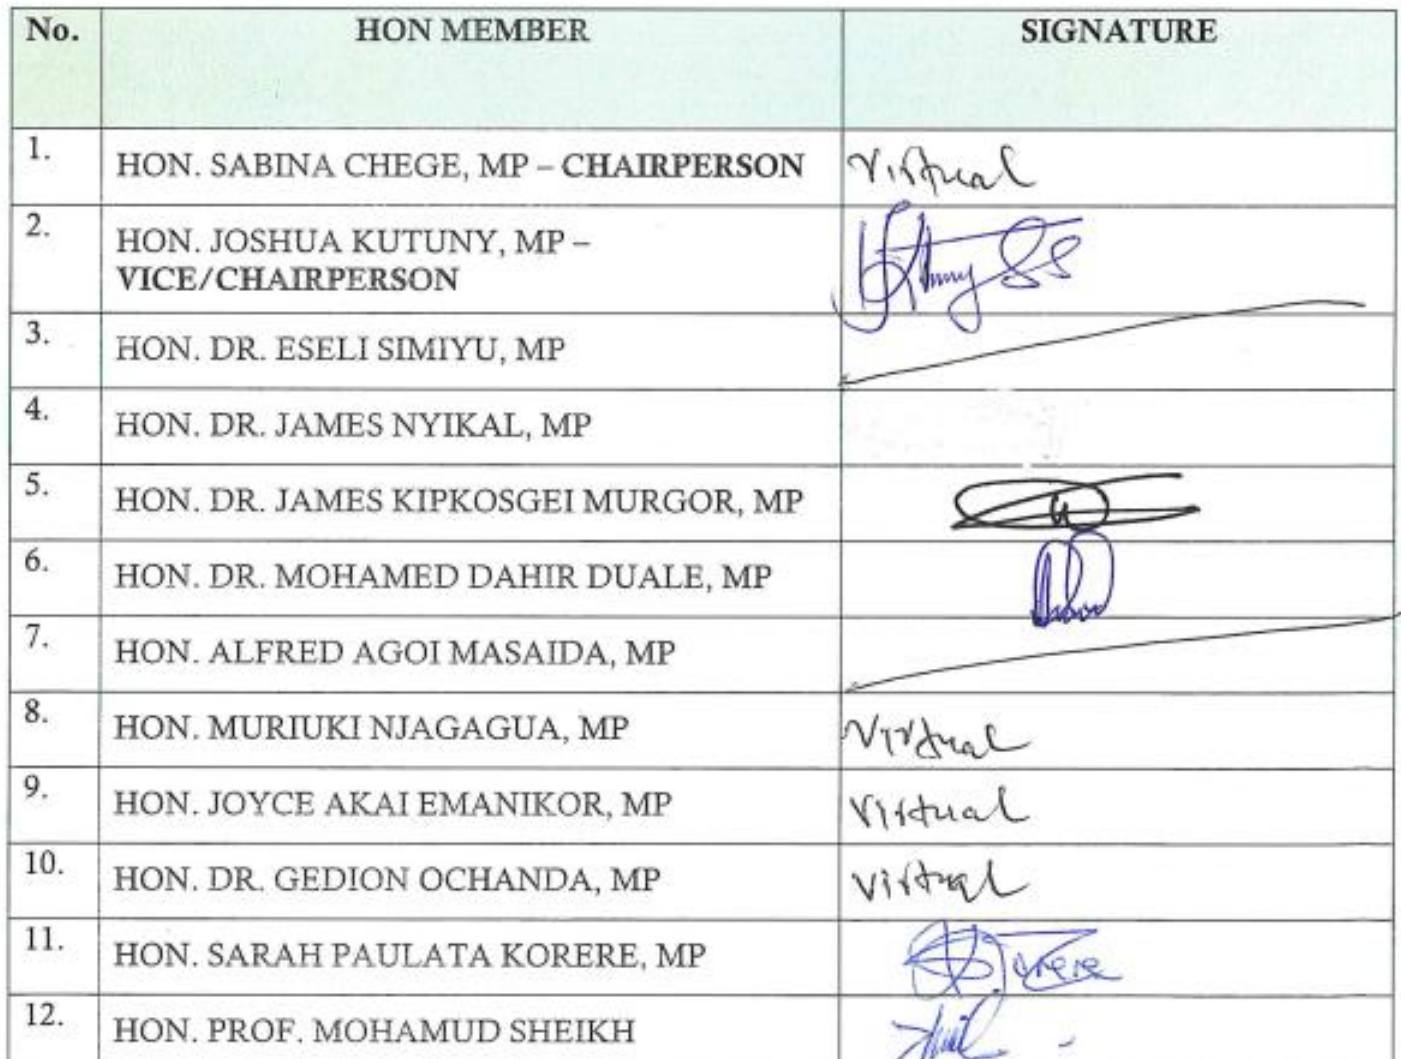 No. HON MEMBER SIGNATURE
1. HON. SABINA CHEGE, MP – CHAIRPERSON Virtual
2. HON. JOSHUA KUTUNY, MP –
VICE/CHAIRPERSON
3. HON. DR. ESELI SIMIYU, MP
4. HON. DR. JAMES NYIKAL, MP
5. HON. DR. JAMES KIPKOSGEI MURGOR, MP
6. HON. DR. MOHAMED DAHIR DUALE, MP
7. HON. ALFRED AGOI MASAIDA, MP
8. HON. MURIUKI NJAGAGUA, MP Virtual
9. HON. JOYCE AKAI EMANIKOR, MP Virtual
10. HON. DR. GEDION OCHANDA, MP Virtual
11. HON. SARAH PAULATA KORERE, MP
12. HON. PROF. MOHAMUD SHEIKH